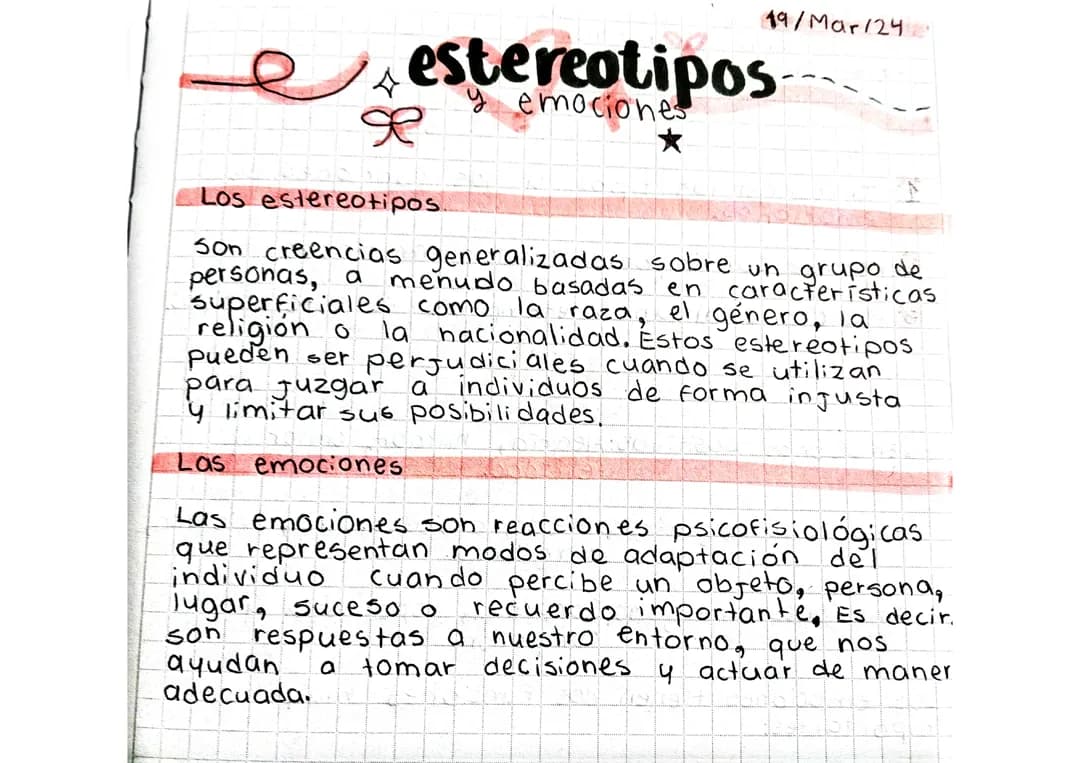 19/Mar/24
estereotipos
y emociones
Los estereotipos
son creencias generalizadas sobre un grupo de
personas, a menudo basadas en características
superficiales como la raza, el género, la
religión o la nacionalidad. Estos estereotipos
pueden ser perjudiciales cuando se utilizan
para juzgar a individuos de forma injusta
y limitar sus posibilidades.
Las emociones
Las emociones son reacciones psicofisiológicas
que representan modos de adaptación del
individuo cuando percibe un objeto, persona,
lugar, suceso o recuerdo importante. Es decir.
son respuestas a nuestro entorno, que nos
ayudan a tomar decisiones y actuar de maner
adecuada.